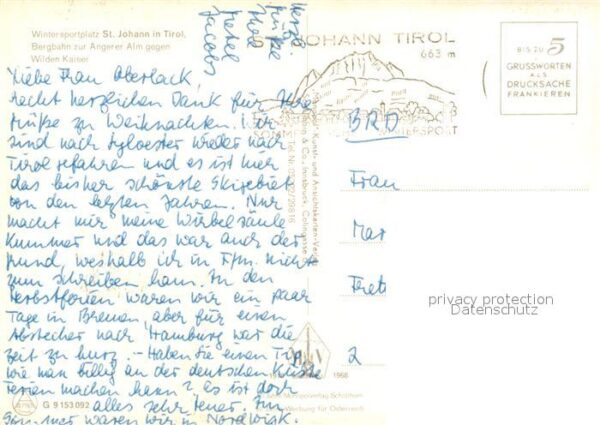 Wintersportplatz St. Johann in Tirol,
Bergbahn zur Angerer Alm gegen
Wilden Kaiser
Liebe Frau Oberlack!
Recht herzlichen Dank für Ihre
Grüße zu Weihnachten. Wir
sind nach Sylvester wieder nach
Tirol gefahren und es ist hier
das bisher schönste Skigebiet
von den letzten Jahren. Nur
macht mir meine Wirbelsäule
Kummer und das war auch der
Grund, weshalb ich in nichts
zum schreiben kam. In den
Herbstferien waren wir ein paar
Tage in Bremen aber für einen
Abstecher nach Hamburg war die
Zeit zu kurz. - Haben Sie einen Tip,
wie man billig an der deutschen Küste
Ferien machen kann? es ist dort
alles sehr teuer. Im
Sommer waren wir in Nordwijk.
Jacobs
JOHANN TIROL
663 m
BIS ZU 5
GRUSSWORTEN
ALS
DRUCKSACHE
FRANKIEREN
BRD
Frau
2
privacy protection
Datenschutz
1968
G 9153092